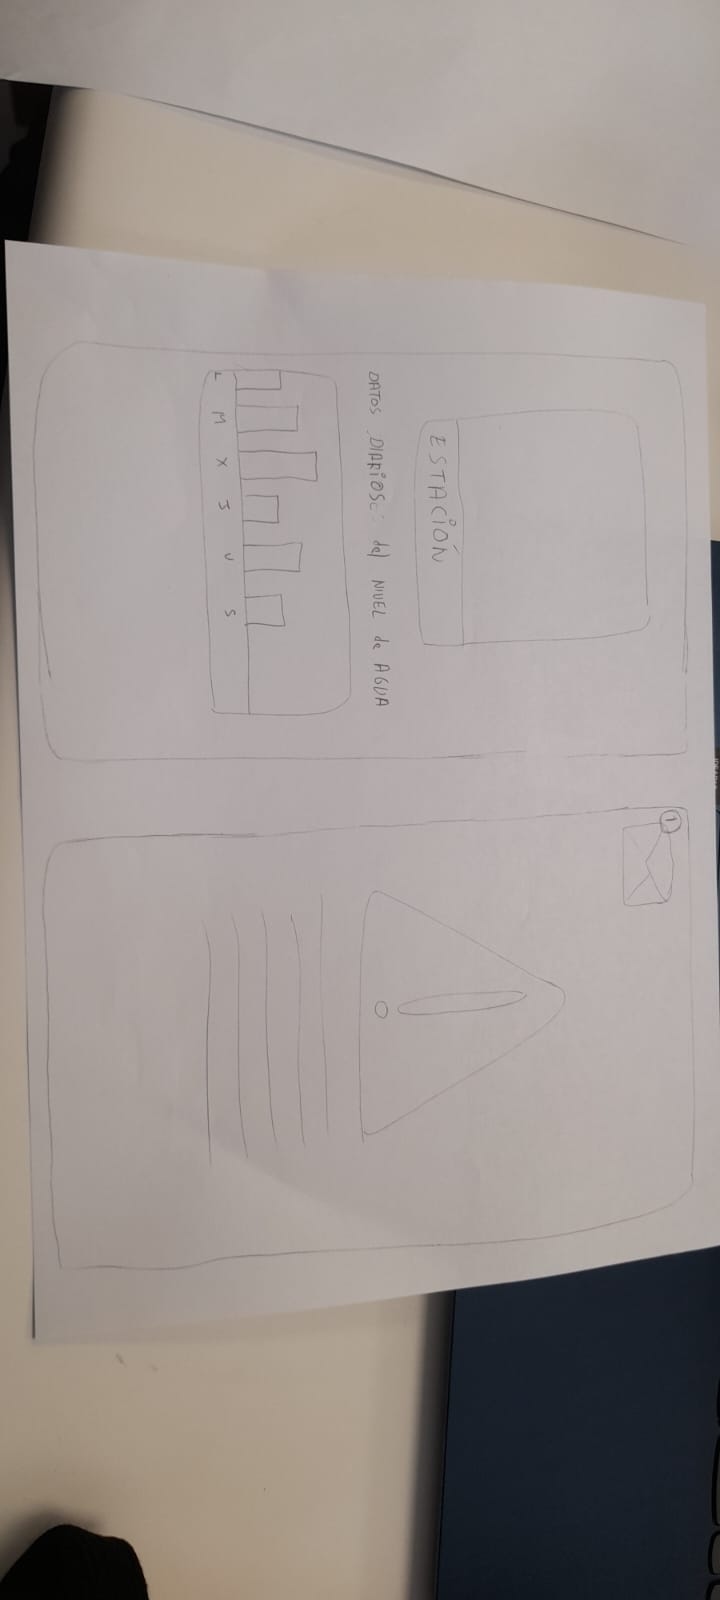 ESTACIÓN
DATOS DIARIOS: del NIVEL de AGUA
L M X J V S
1